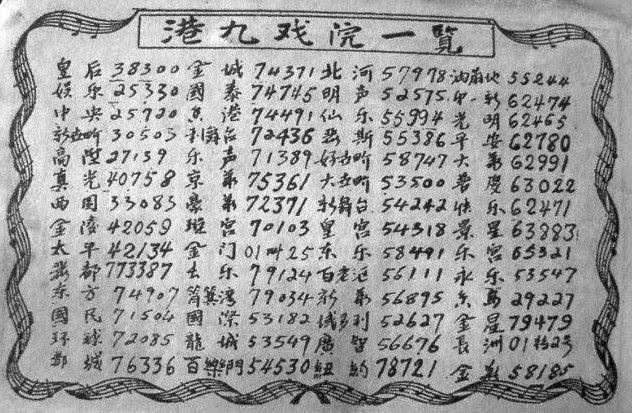 港九戏院一覧
皇后 38300 金城 74371 北河 57978 油麻地 55244
娱乐 25330 國泰 74745 明声 52575 62474
中央 25720 香港 74491 仙乐 55994 光明 62465
30503 利舞台 72436 55386 平安 62780
高陞 27139 乐声 71389 58747 大華 62991
真光 40758 京華 75361 53500 普慶 63022
西园 33083 豪華 72371 新舞台 54242 快乐 62471
金陵 42059 璇宮 70103 皇宮 54318 景星 63883
太平 42134 金门 25 东乐 58491 乐宮 65321
燕都 773387 乐 79124 百老汇 56111 永乐 53547
东方 74907 筲箕湾 79034 新華 56895 29227
國民 71504 國際 53182 域多利 52627 金星 79479
环球 72085 龍城 53549 廣智 56676 長洲 01
都城 76336 百樂門 54530 紐約 78721 金 58185